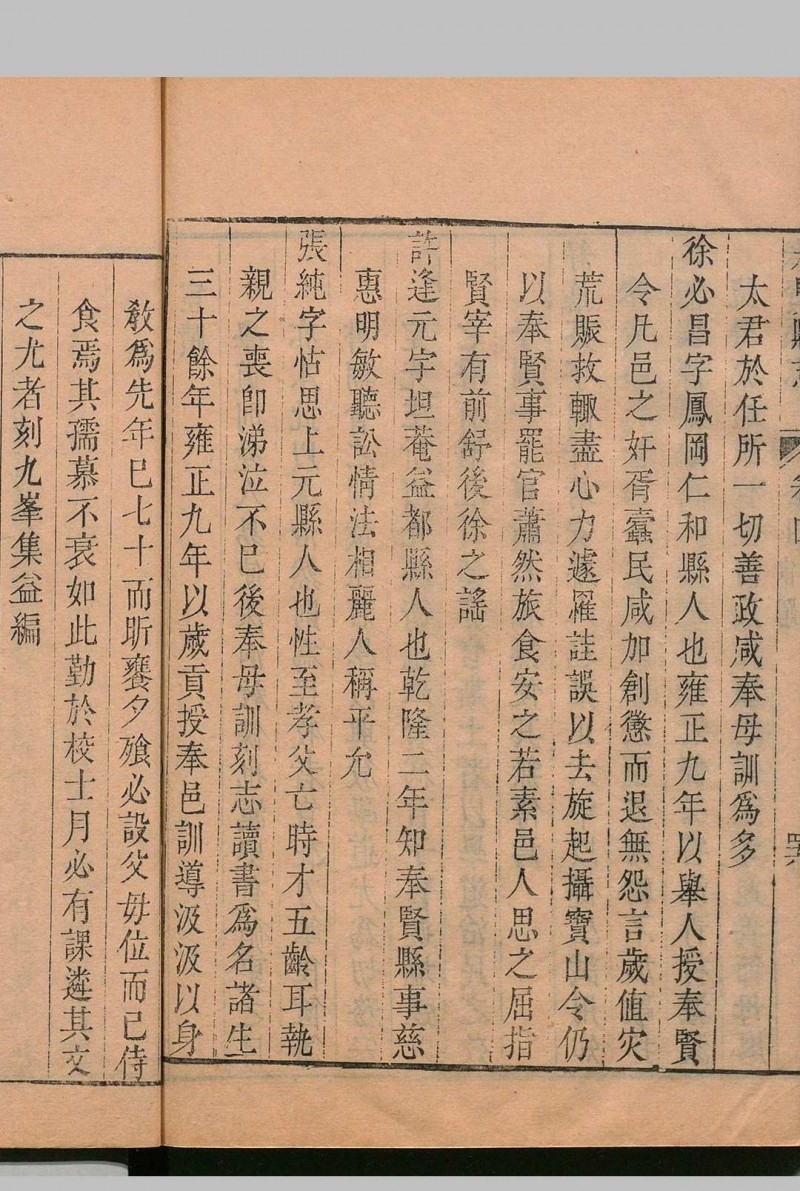 太君於任所一切善政咸奉母訓爲多
徐必昌字鳳岡仁和縣人也雍正九年以舉人授奉賢
令凡邑之奸胥蠹民咸加創懲而退無怨言歲値灾
荒賑救輙盡心力遽罹詿誤以去旋起攝寶山令仍
以奉賢事罷官蕭然旅食安之若素邑人思之屈指
賢宰有前舒後徐之謡
許逢元字坦菴益都縣人也乾隆二年知奉賢縣事慈
惠明敏聽訟情法相麗人稱平允
張純字怙思上元縣人也性至孝父亡時才五齡耳執
親之喪卽涕泣不已後奉母訓刻志讀書爲名諸生
三十餘年雍正九年以歲貢授奉邑訓導汲汲以身
敎爲先年已七十而昕饔夕飱必設父母位而已侍
食焉其孺慕不衰如此勤於校士月必有課遴其文
之尤者刻九峯集益編